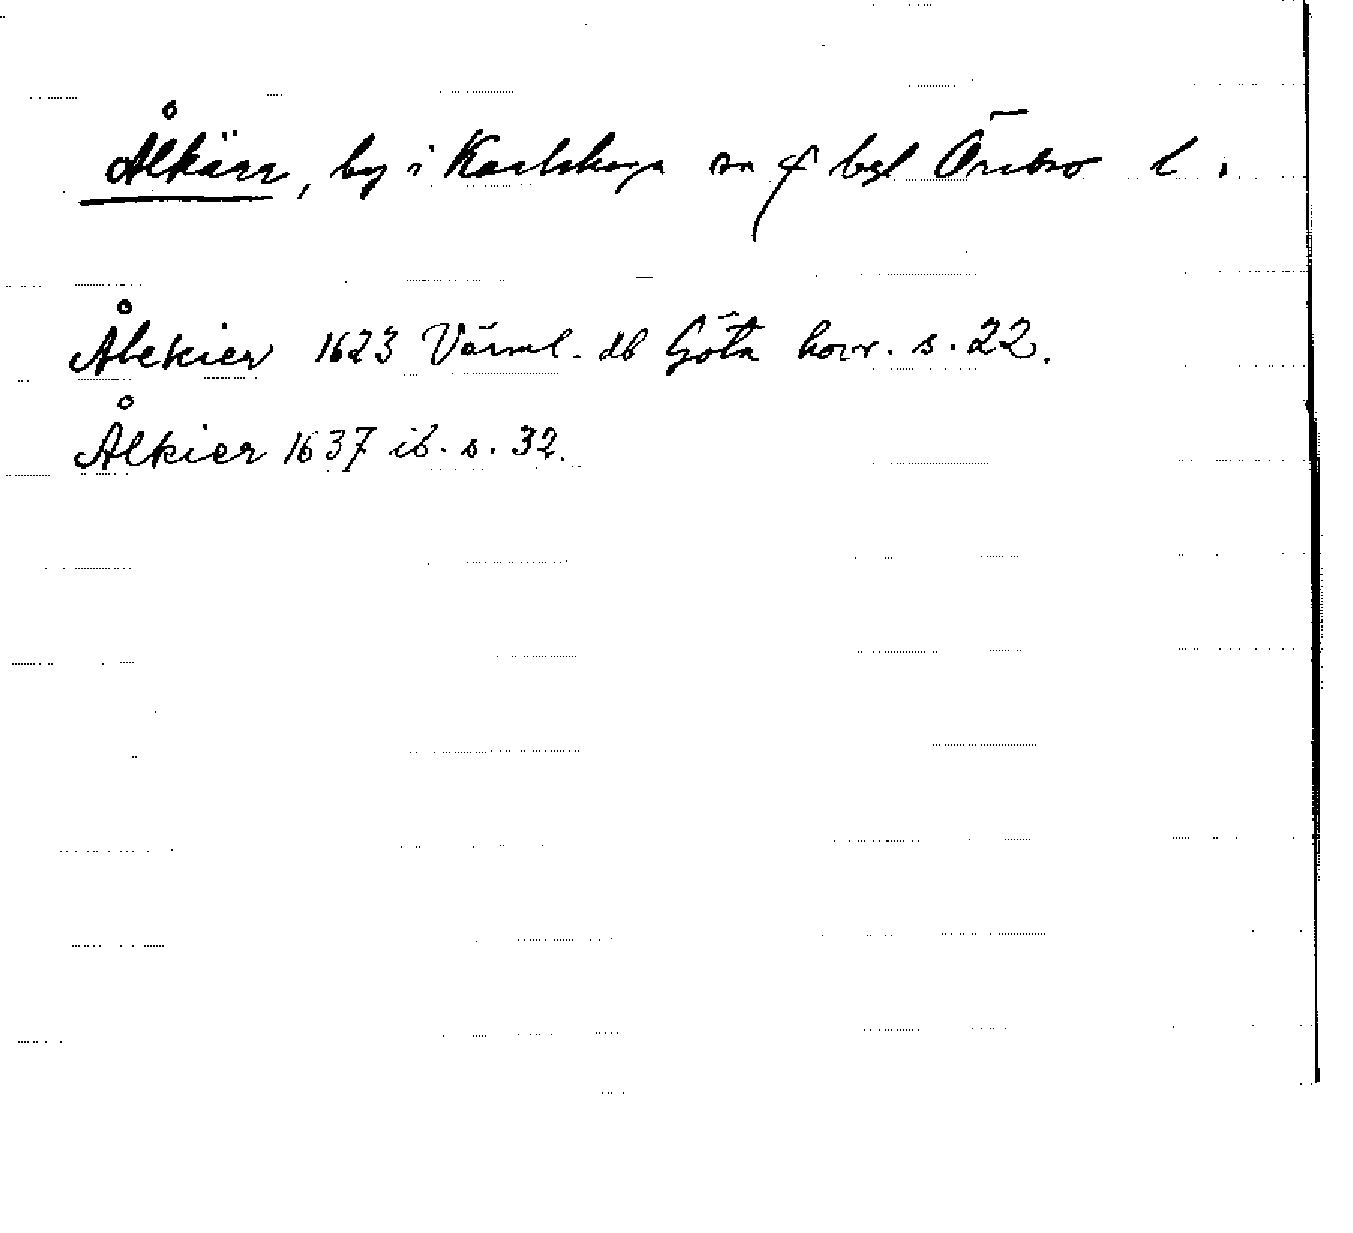 Ålkärr, by i Karlskoga sn o bgl Örebro l.
Ålekier 1623 Värml. db Göta hovr. s. 22.
Ålkier 1637 ib. s. 32.